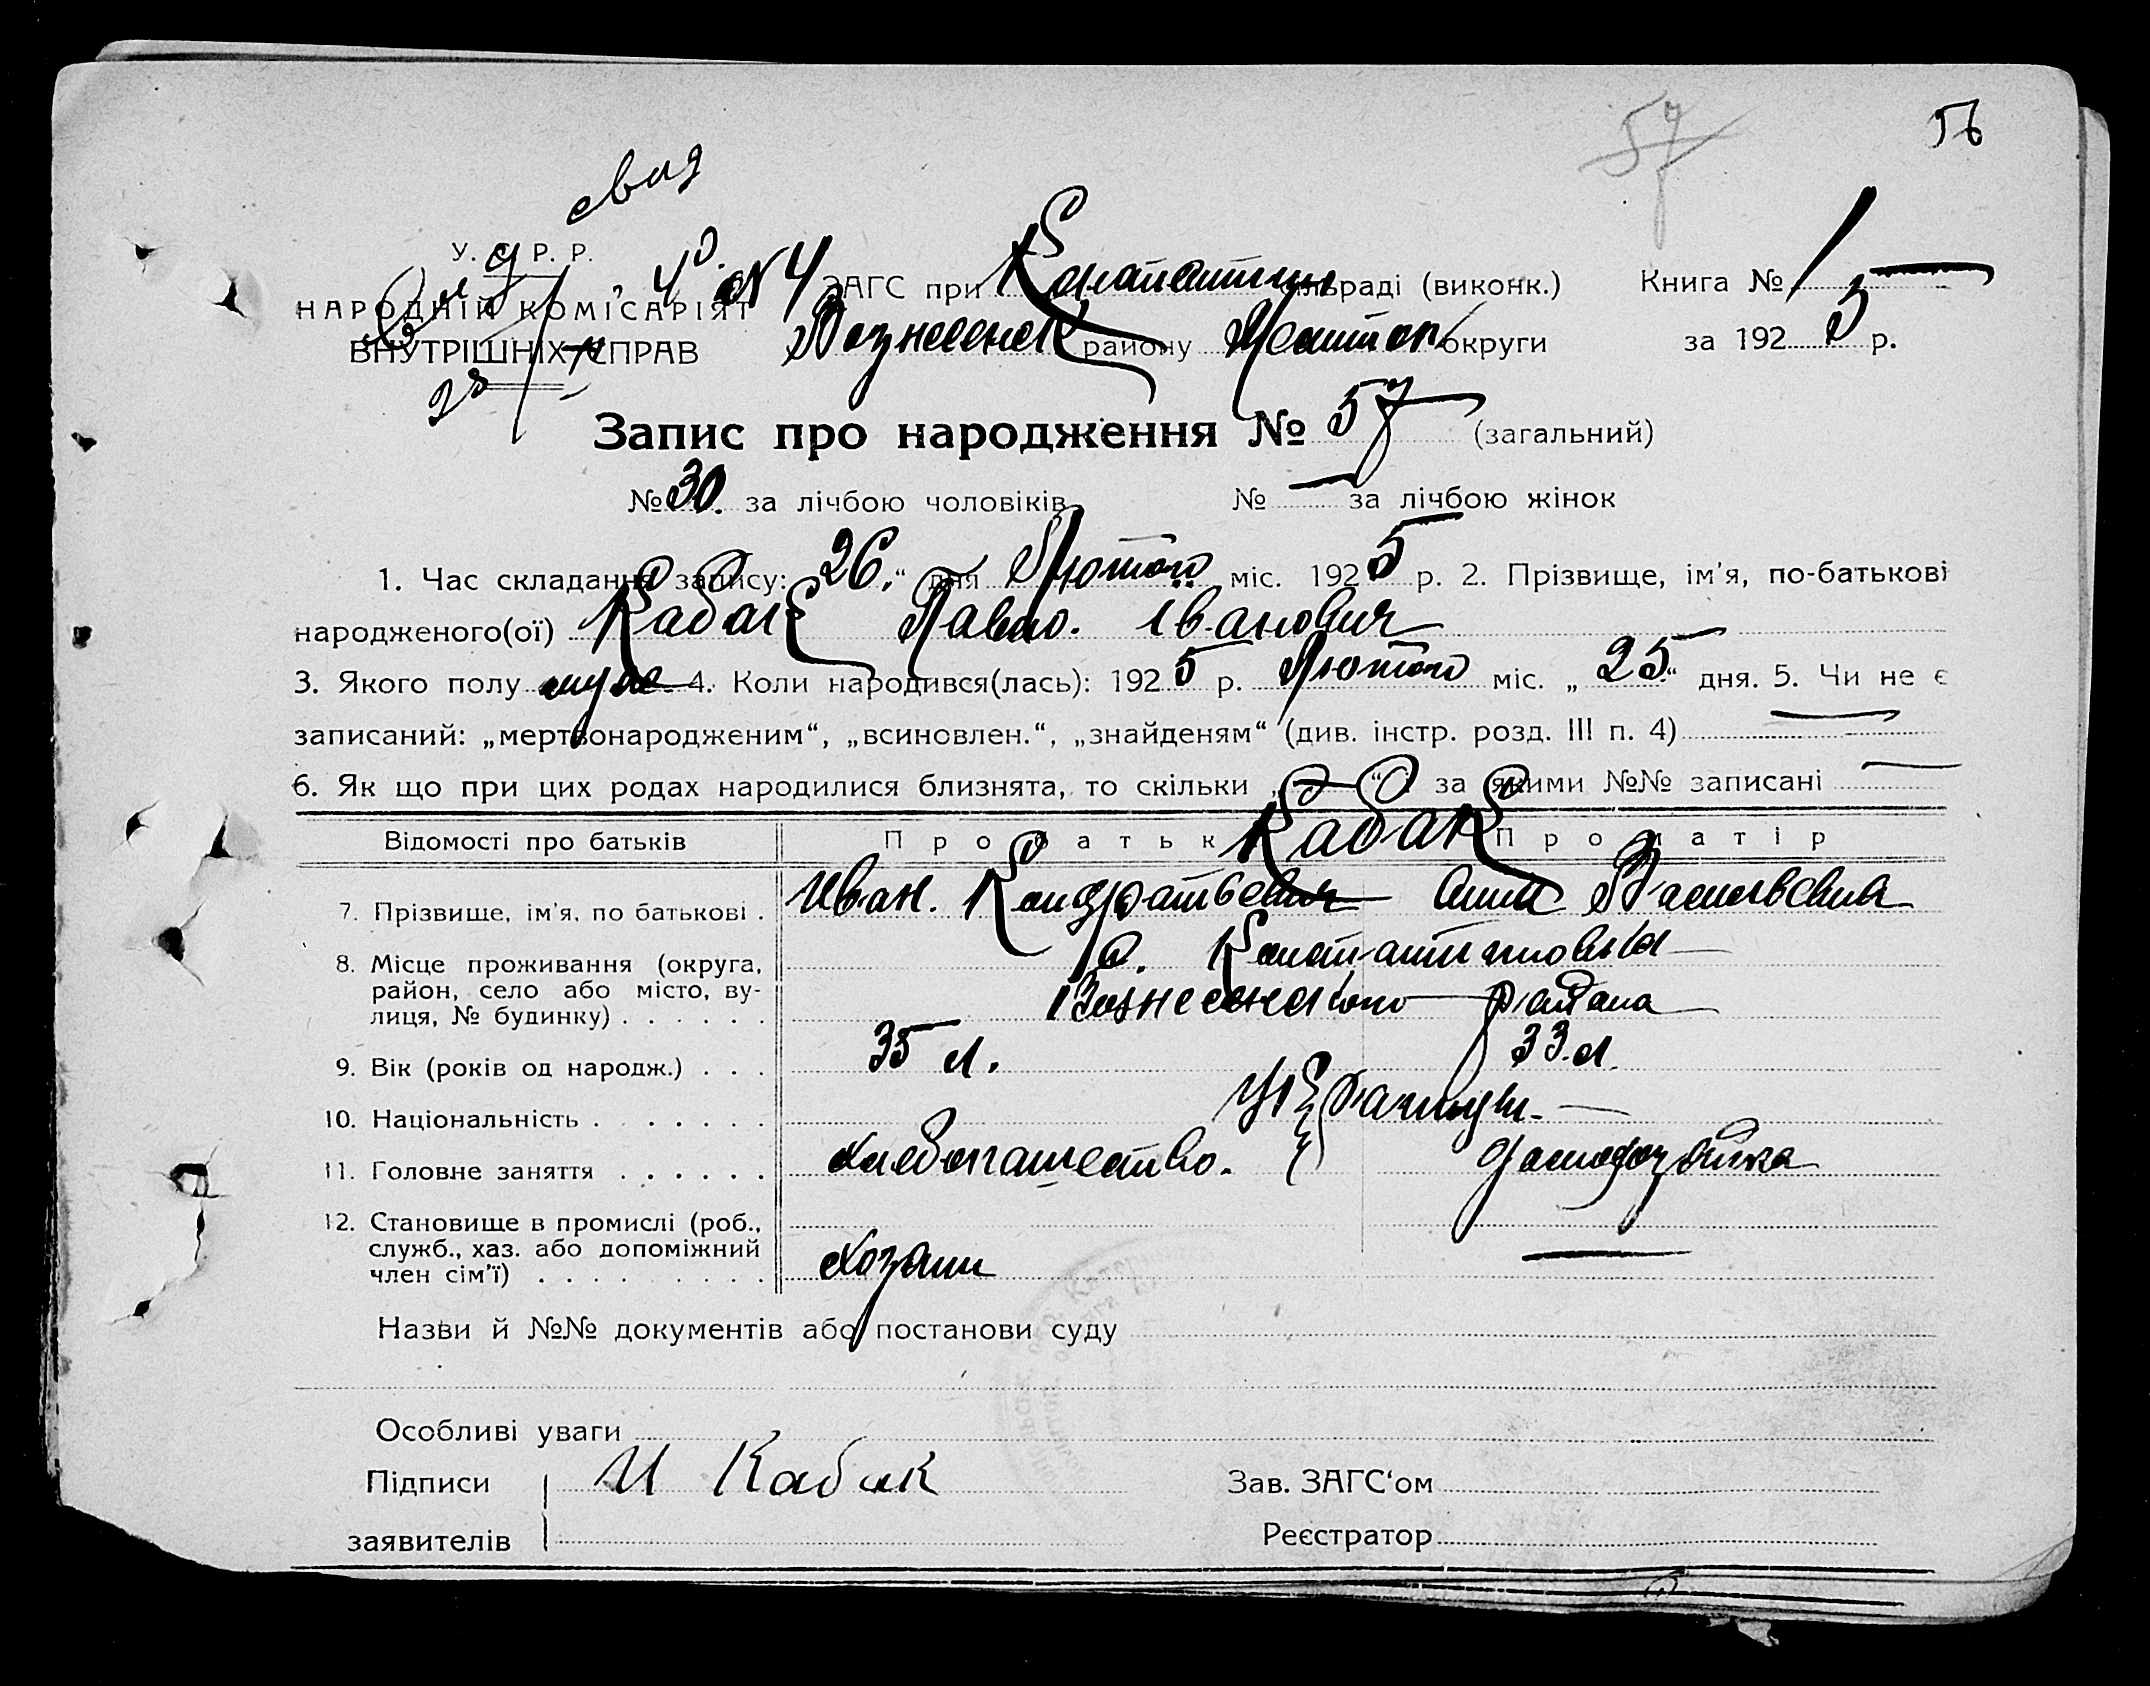 57 56
свид
У. С. Р. Р.
НАРОДНІЙ КОМІСАРІЯТ
ВНУТРІШНІХ СПРАВ
№ 4 ЗАГС при Констаттин сільраді (виконк.) Книга № 1
Вознесенск району округи за 1925 р.
Запис про народження № 57 (загальний)
№ 30. за лічбою чоловіків № — за лічбою жінок
1. Час складання запису: 26. “ дня Лютого міс. 1925 р. 2. Прізвище, ім'я, по-батькові
народженого(ої) Кабак Павло. Іванович
3. Якого полу муж. 4. Коли народився(лась): 1925 р. Лютого міс. „ 25 “ дня. 5. Чи не є
записаний: „мертвонародженим“, „всиновлен.“, „знайденям“ (див. інстр. розд. III п. 4) —
6. Як що при цих родах народилися близнята, то скільки „ — “ за якими №№ записані —
Відомості про батьків Про батька Кабак Про матір
7. Прізвище, ім'я, по батькові . Иван. Кондратьевич Анна Васильевна
8. Місце проживання (округа, с. Константиновка
район, село або місто, ву- Вознесенского района
лиця, № будинку) . . . . . .
9. Вік (років од народж.) . . . 35 л. 33. л.
10. Національність . . . . . . . Украинцы
11. Головне заняття . . . . . . Хлебопашество. домохозяйка
12. Становище в промислі (роб.,
служб., хаз. або допоміжний
член сім'ї) . . . . . . . . . Хозяин —
Назви й №№ документів або постанови суду
Особливі уваги
Підписи И Кабак Зав. ЗАГС‘ом
заявителів Реєстратор